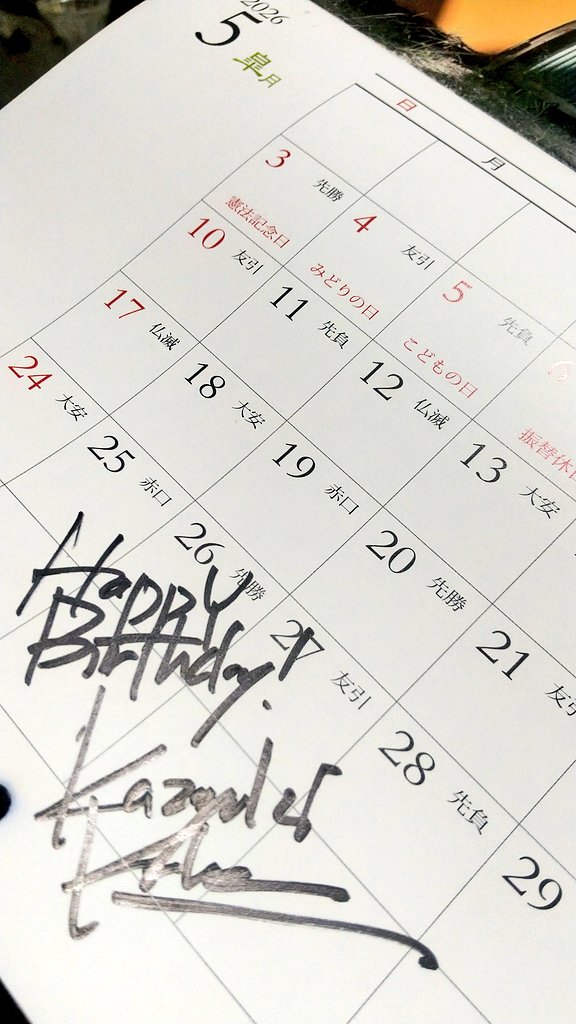 2026
5 皐月
日 月
3 先勝 憲法記念日
4 友引 みどりの日
5 先負 こどもの日
6 振替休日
10 友引
11 先負
12 仏滅
13 大安
17 仏滅
18 大安
19 赤口
20 先勝
21 友引
24 大安
25 赤口
26 先勝
27 友引
28 先負
29
Happy
Birthday!